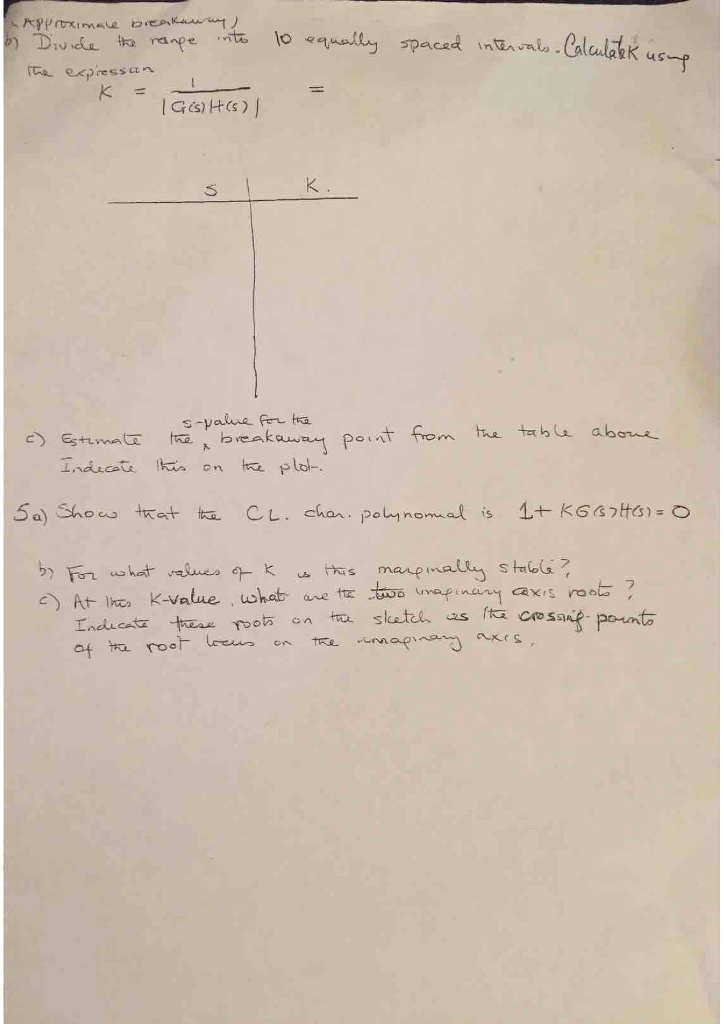 (Approximate breakaway)
b) Divide the range into 10 equally spaced intervals. Calculate K using
the expression
K = 1 / |G(s)H(s)| =
S K.
s-value for the
c) Estimate the ^ breakaway point from the table above
Indicate this on the plot.
5a) Show that the CL. char. polynomial is 1+ KG(s)H(s) = 0
b) For what values of K is this marginally stable?
c) At this K-value, what are the two imaginary axis roots?
Indicate these roots on the sketch as the crossing-points
of the root locus on the imaginary axis.